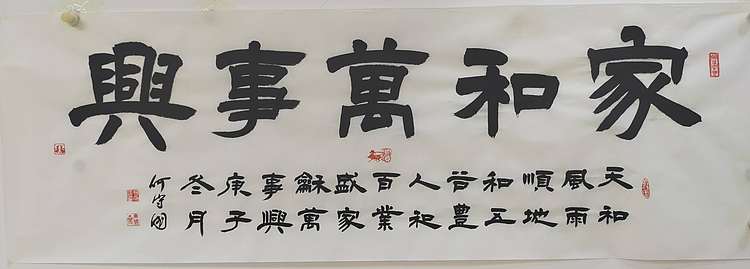 家和萬事興
天和
風雨
順地
和五
谷豊
人和
百業
盛家
龢萬
事興
庚子
冬月
何守